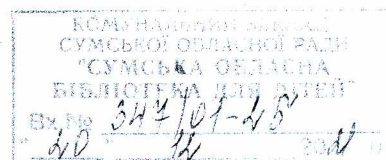 КОМУНАЛЬНИЙ ЗАКЛАД
СУМСЬКОЇ ОБЛАСНОЇ РАДИ
"СУМСЬКА ОБЛАСНА
БІБЛІОТЕКА ДЛЯ ДІТЕЙ"
Вх.№ 347/01-25
"20" 12 2021